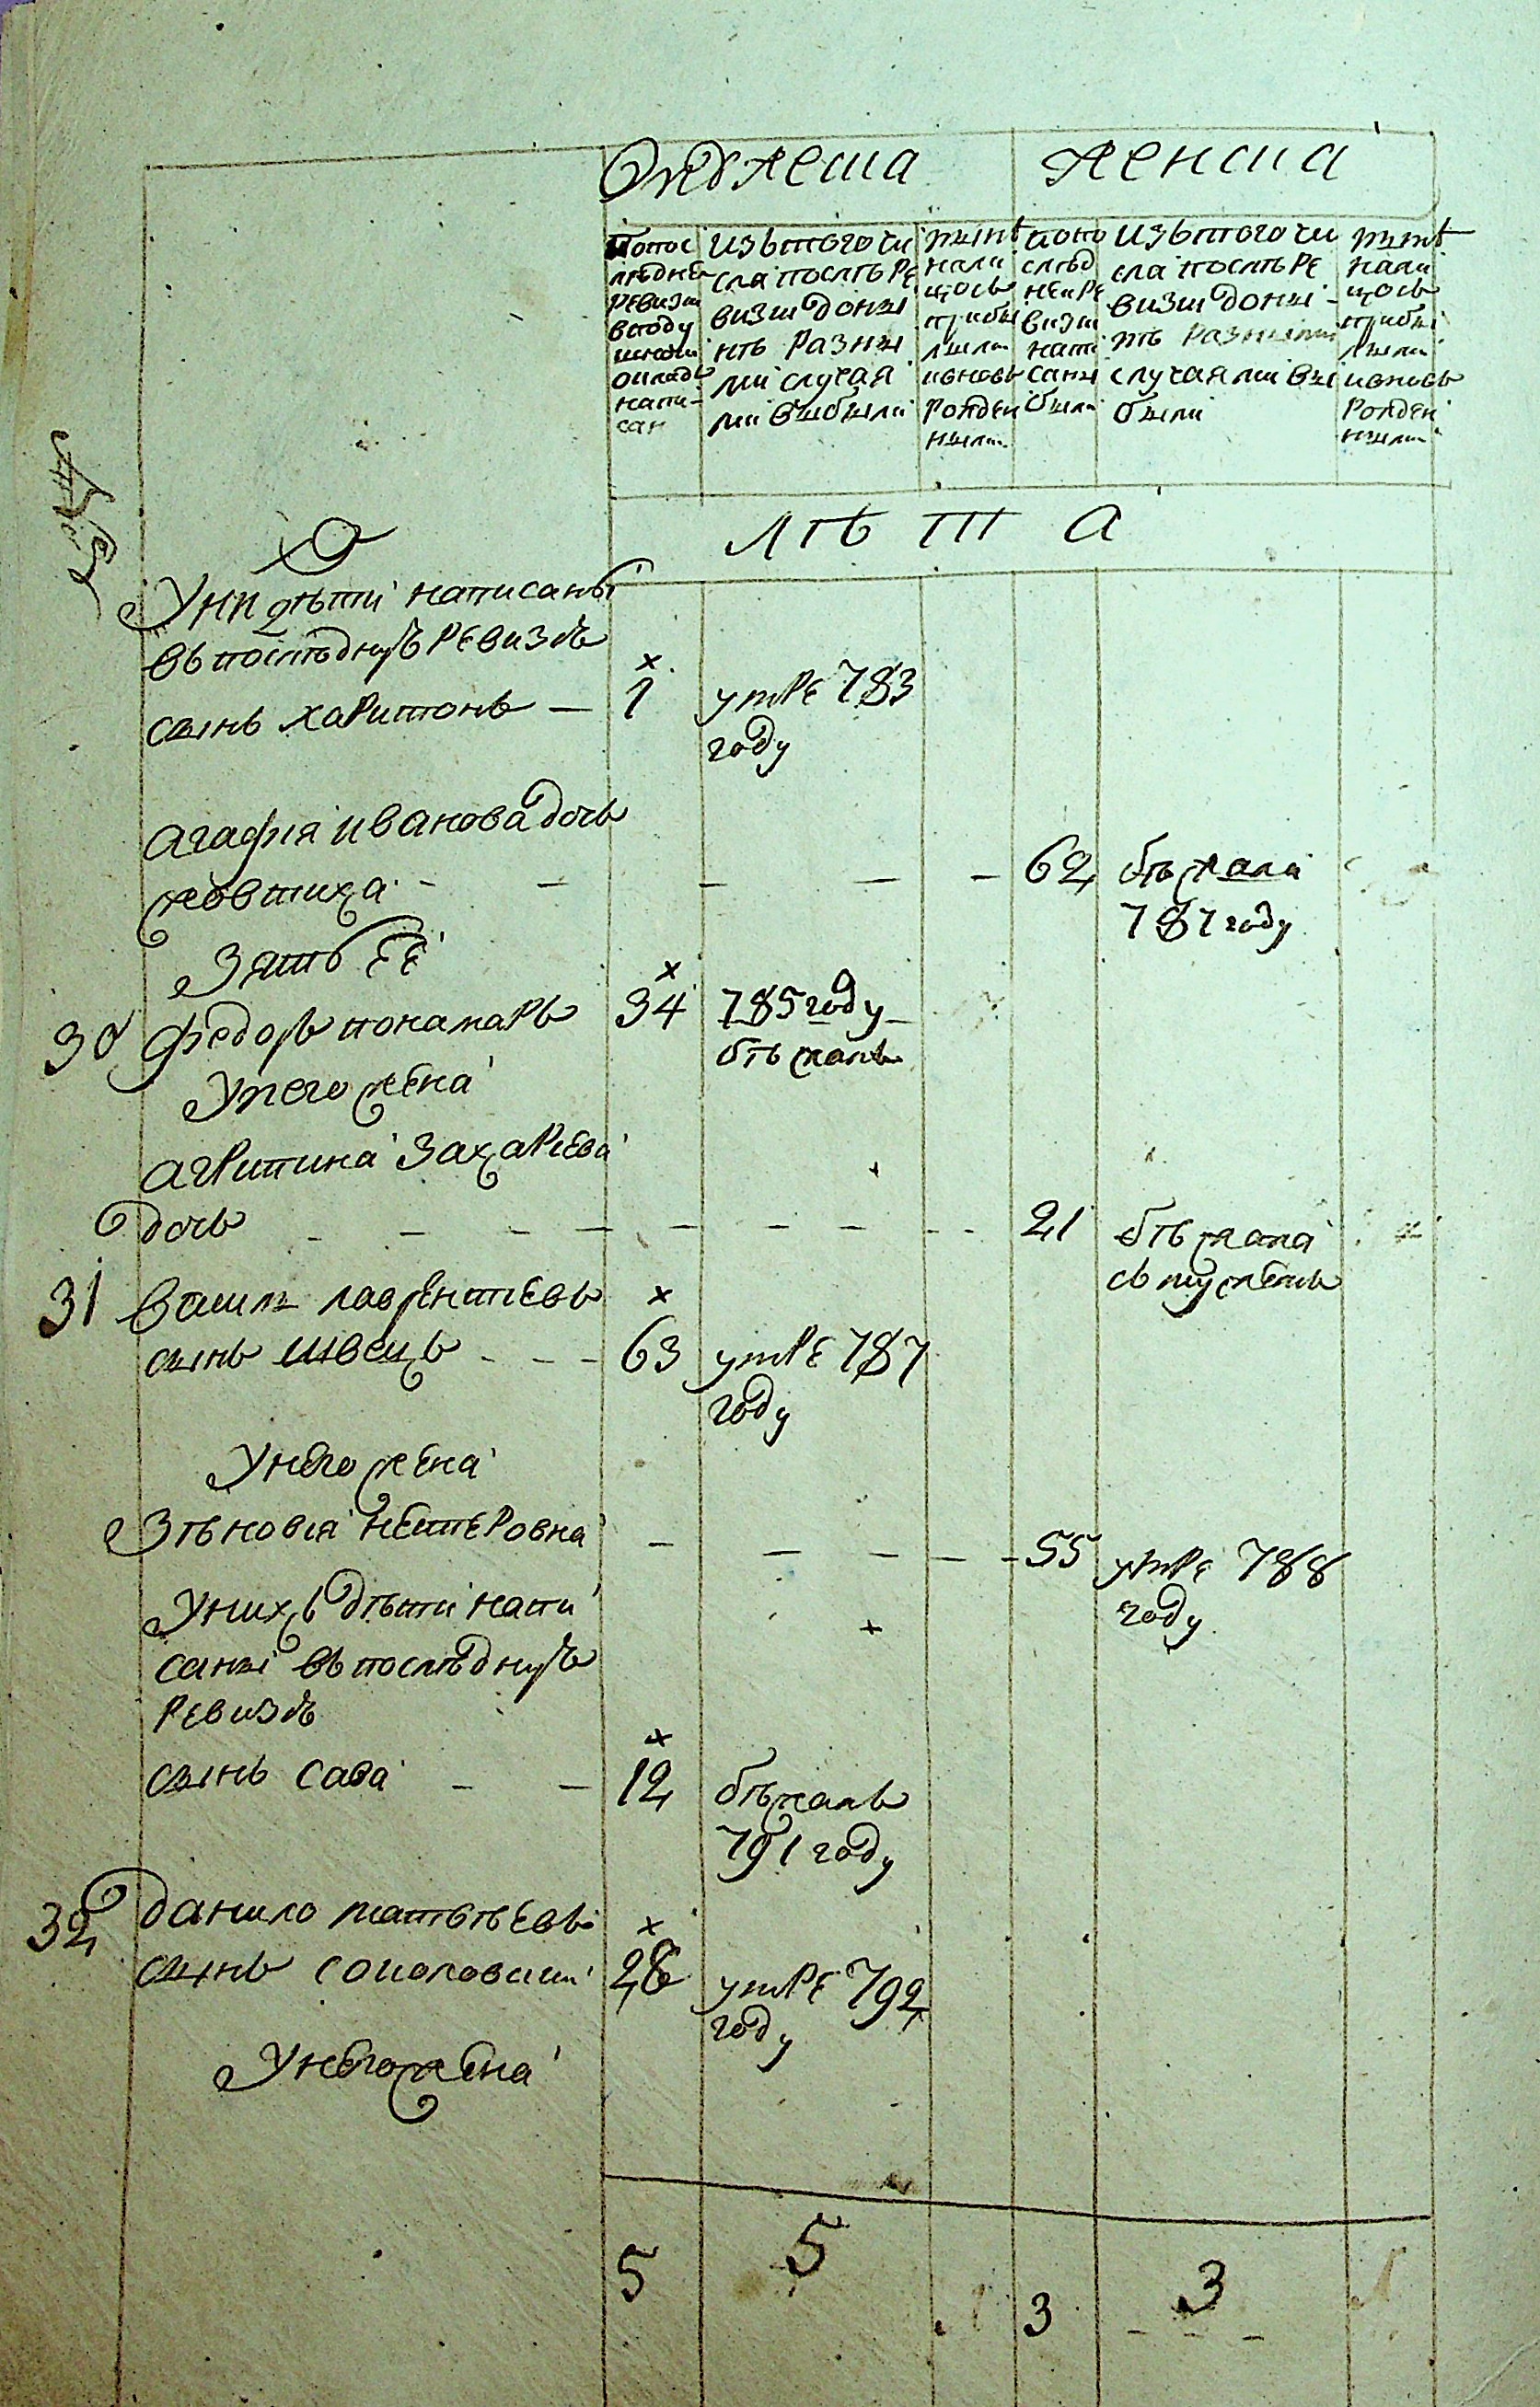 Мужеска Женска
По пос
ледней
ревизии
в году
написан
Изъ того чи
сла после ре
визии доны
нѣ разны
ми случая
ми выбыли
ныне
нали
цось
прибы
лыми
и вновь
рожден
ными
по по
след
ней ре
визии
напи
саны
были
Изъ того чи
сла после ре
визии доны
нѣ разными
случаями вы
были
ныне
нали
цось
прибы
лыми
и вновь
рожден
ными
лѣта
дѣти написаны
въ последную ревизѣю
сынъ харитонъ — 1 умре 783
году
агафия иванова дочь
жовтиха - - - - - 62 бѣжала
787 году
Зять ее
30 федоръ понамаръ 34 785 году
бѣжалъ
У него жена
агрипина захариева
дочь - - - - - - - - - 21 бѣжала
съ мужемъ
31 василь лаврентиевъ
сынъ швецъ - - - 63 умре 787
году
У него жена
Зѣновия нестеровна - - - - - 55 умре 788
году
У нихъ дѣти напи
саны въ последную
ревизѣю
сынъ сава - - 12 бѣжалъ
791 году
32 данило матвѣевъ
сынъ соколовский 28 умре 792
году
У него жена
5 5 3 3